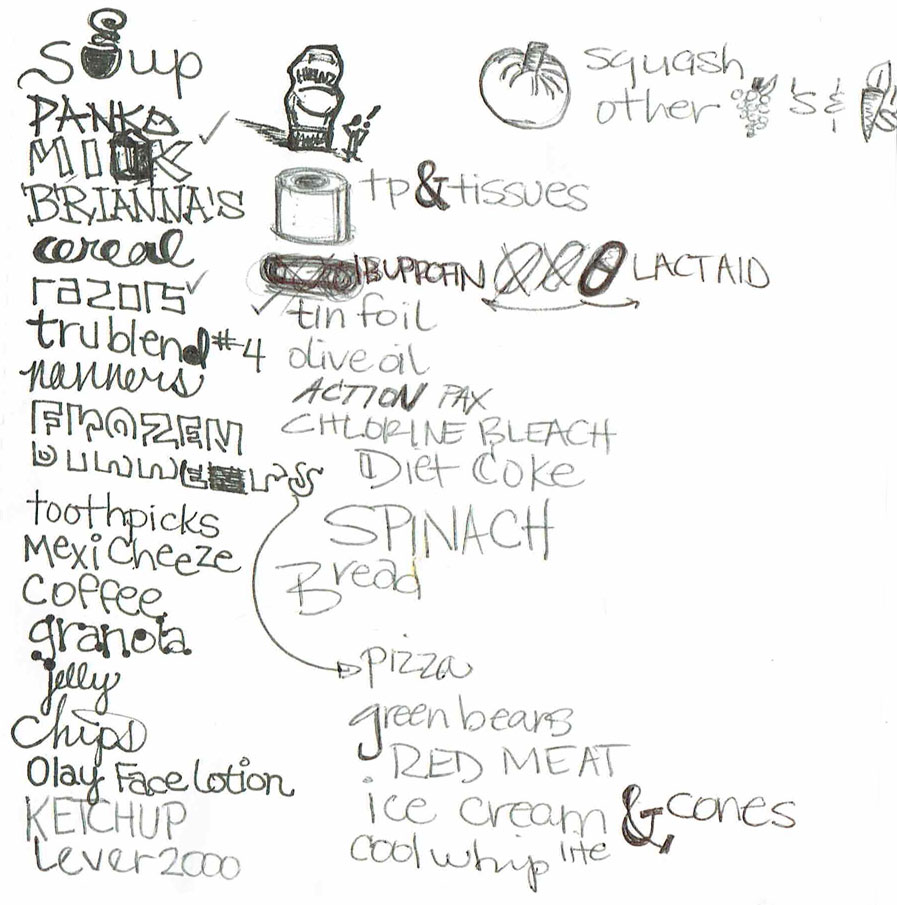 Soup
PANKO
MILK
BRIANNA'S
cereal
razors
trublend #4
nanners
FROZEN
DINNERS
toothpicks
Mexi Cheeze
Coffee
granola
jelly
Chips
Olay Face Lotion
KETCHUP
Lever 2000
HEINZ
tp & tissues
IBUPROFIN LACTAID
tin foil
olive oil
ACTION PAX
CHLORINE BLEACH
Diet Coke
SPINACH
Bread
pizza
green beans
RED MEAT
ice cream & cones
cool whip lite
squash
other 's & 's